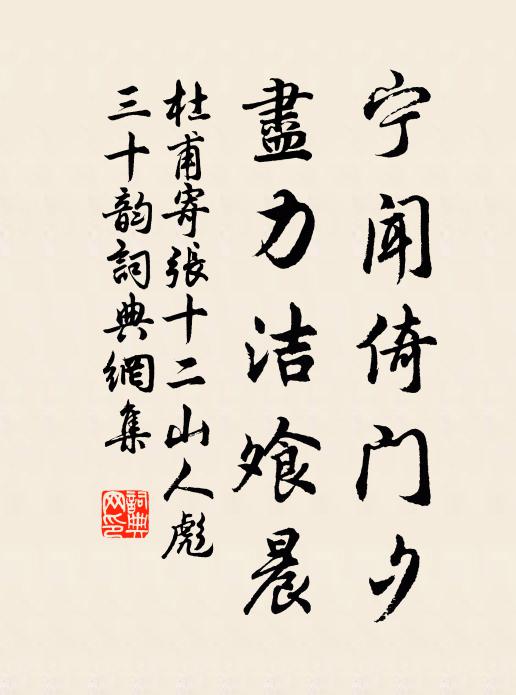 宁闻倚门夕
盡力洁飧晨
杜甫寄張十二山人彪
三十韵詞典網集
詞典
网印